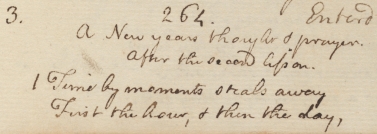 3. 264. Enterd
A New years thought & prayer.
After the second lesson.
1 Time by moments steals away
First the hour, & then the day,